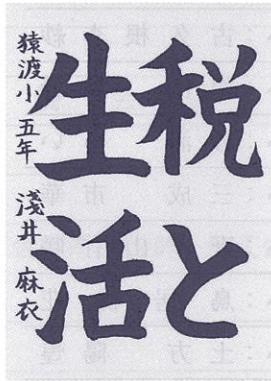 税と
生活
猿渡小五年 淺井麻衣